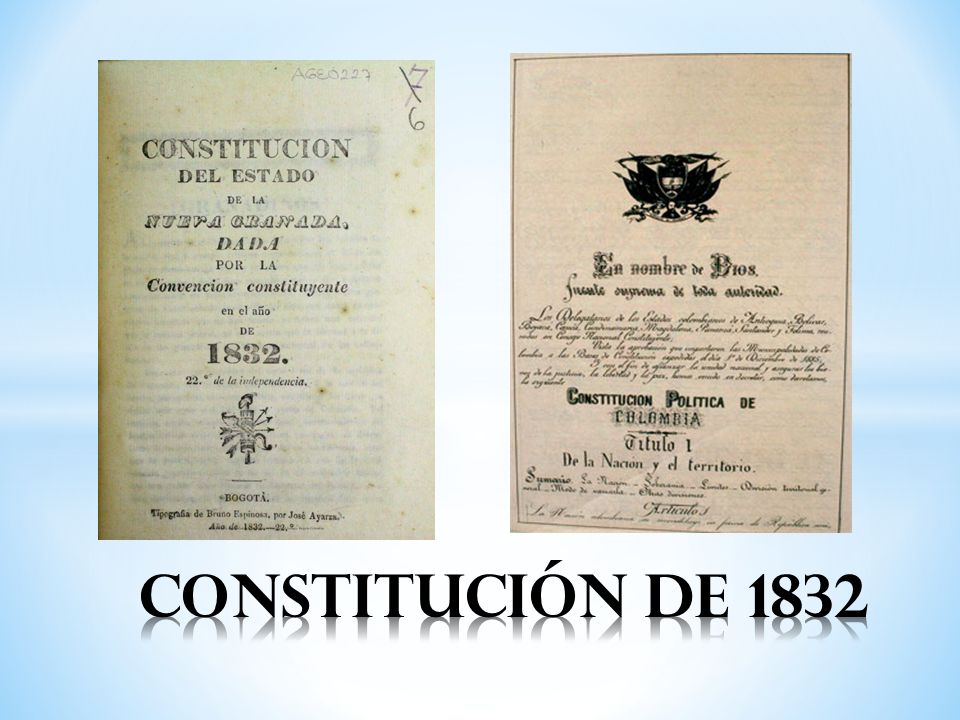 AGE0227
7
6
CONSTITUCION
DEL ESTADO
DE LA
NUEVA GRANADA,
DADA
POR LA
Convencion constituyente
en el año
DE
1832.
22.º de la independencia.
BOGOTÁ.
Tipografia de Bruno Espinosa, por José Ayarza.
Año de 1832.—22.º
En nombre de Dios,
fuente suprema de toda autoridad.
Los Delegatarios de los Estados colombianos de Antioquia, Bolivar,
Boyacá, Cauca, Cundinamarca, Magdalena, Panamá, Santander y Tolima, reu-
nidos en Consejo Nacional Constituyente;
Vista la aprobacion que impartieron las Municipalidades de Co-
lombia a las Bases de Constitucion expedidas el dia 1º de Diciembre de 1885;
Y con el fin de afianzar la unidad nacional y asegurar los bie-
nes de la justicia, la libertad y la paz, hemos venido en decretar, como decretamos,
la siguiente
CONSTITUCION POLITICA DE
COLOMBIA
Titulo 1
De la Nación y el territorio.
Sumario. La Nación – Soberania – Limites – Division territorial ge-
neral – Modo de variarla – Otras divisiones.
Articulo 1
La Nación colombiana se reconstituye en forma de República uni-
CONSTITUCIÓN DE 1832